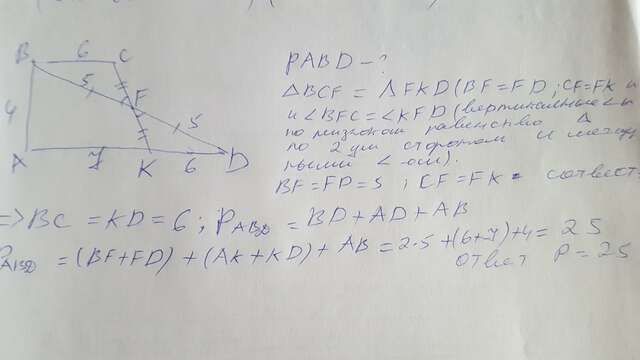 B 6 C
5
F
4
5
A 7 K 6 D
PABD - ?
ΔBCF = ΔFKD (BF = FD; CF = FK и
и <BFC = <KFD (вертикальные <и
по равенство Δ
по 2 ум сторонам и между
ными < ом).
BF = FD = 5; CF = FK соответст
=> BC = KD = 6; PABD = BD + AD + AB
PABD = (BF + FD) + (AK + KD) + AB = 2·5 + (6+7) + 4 = 25
ответ P = 25